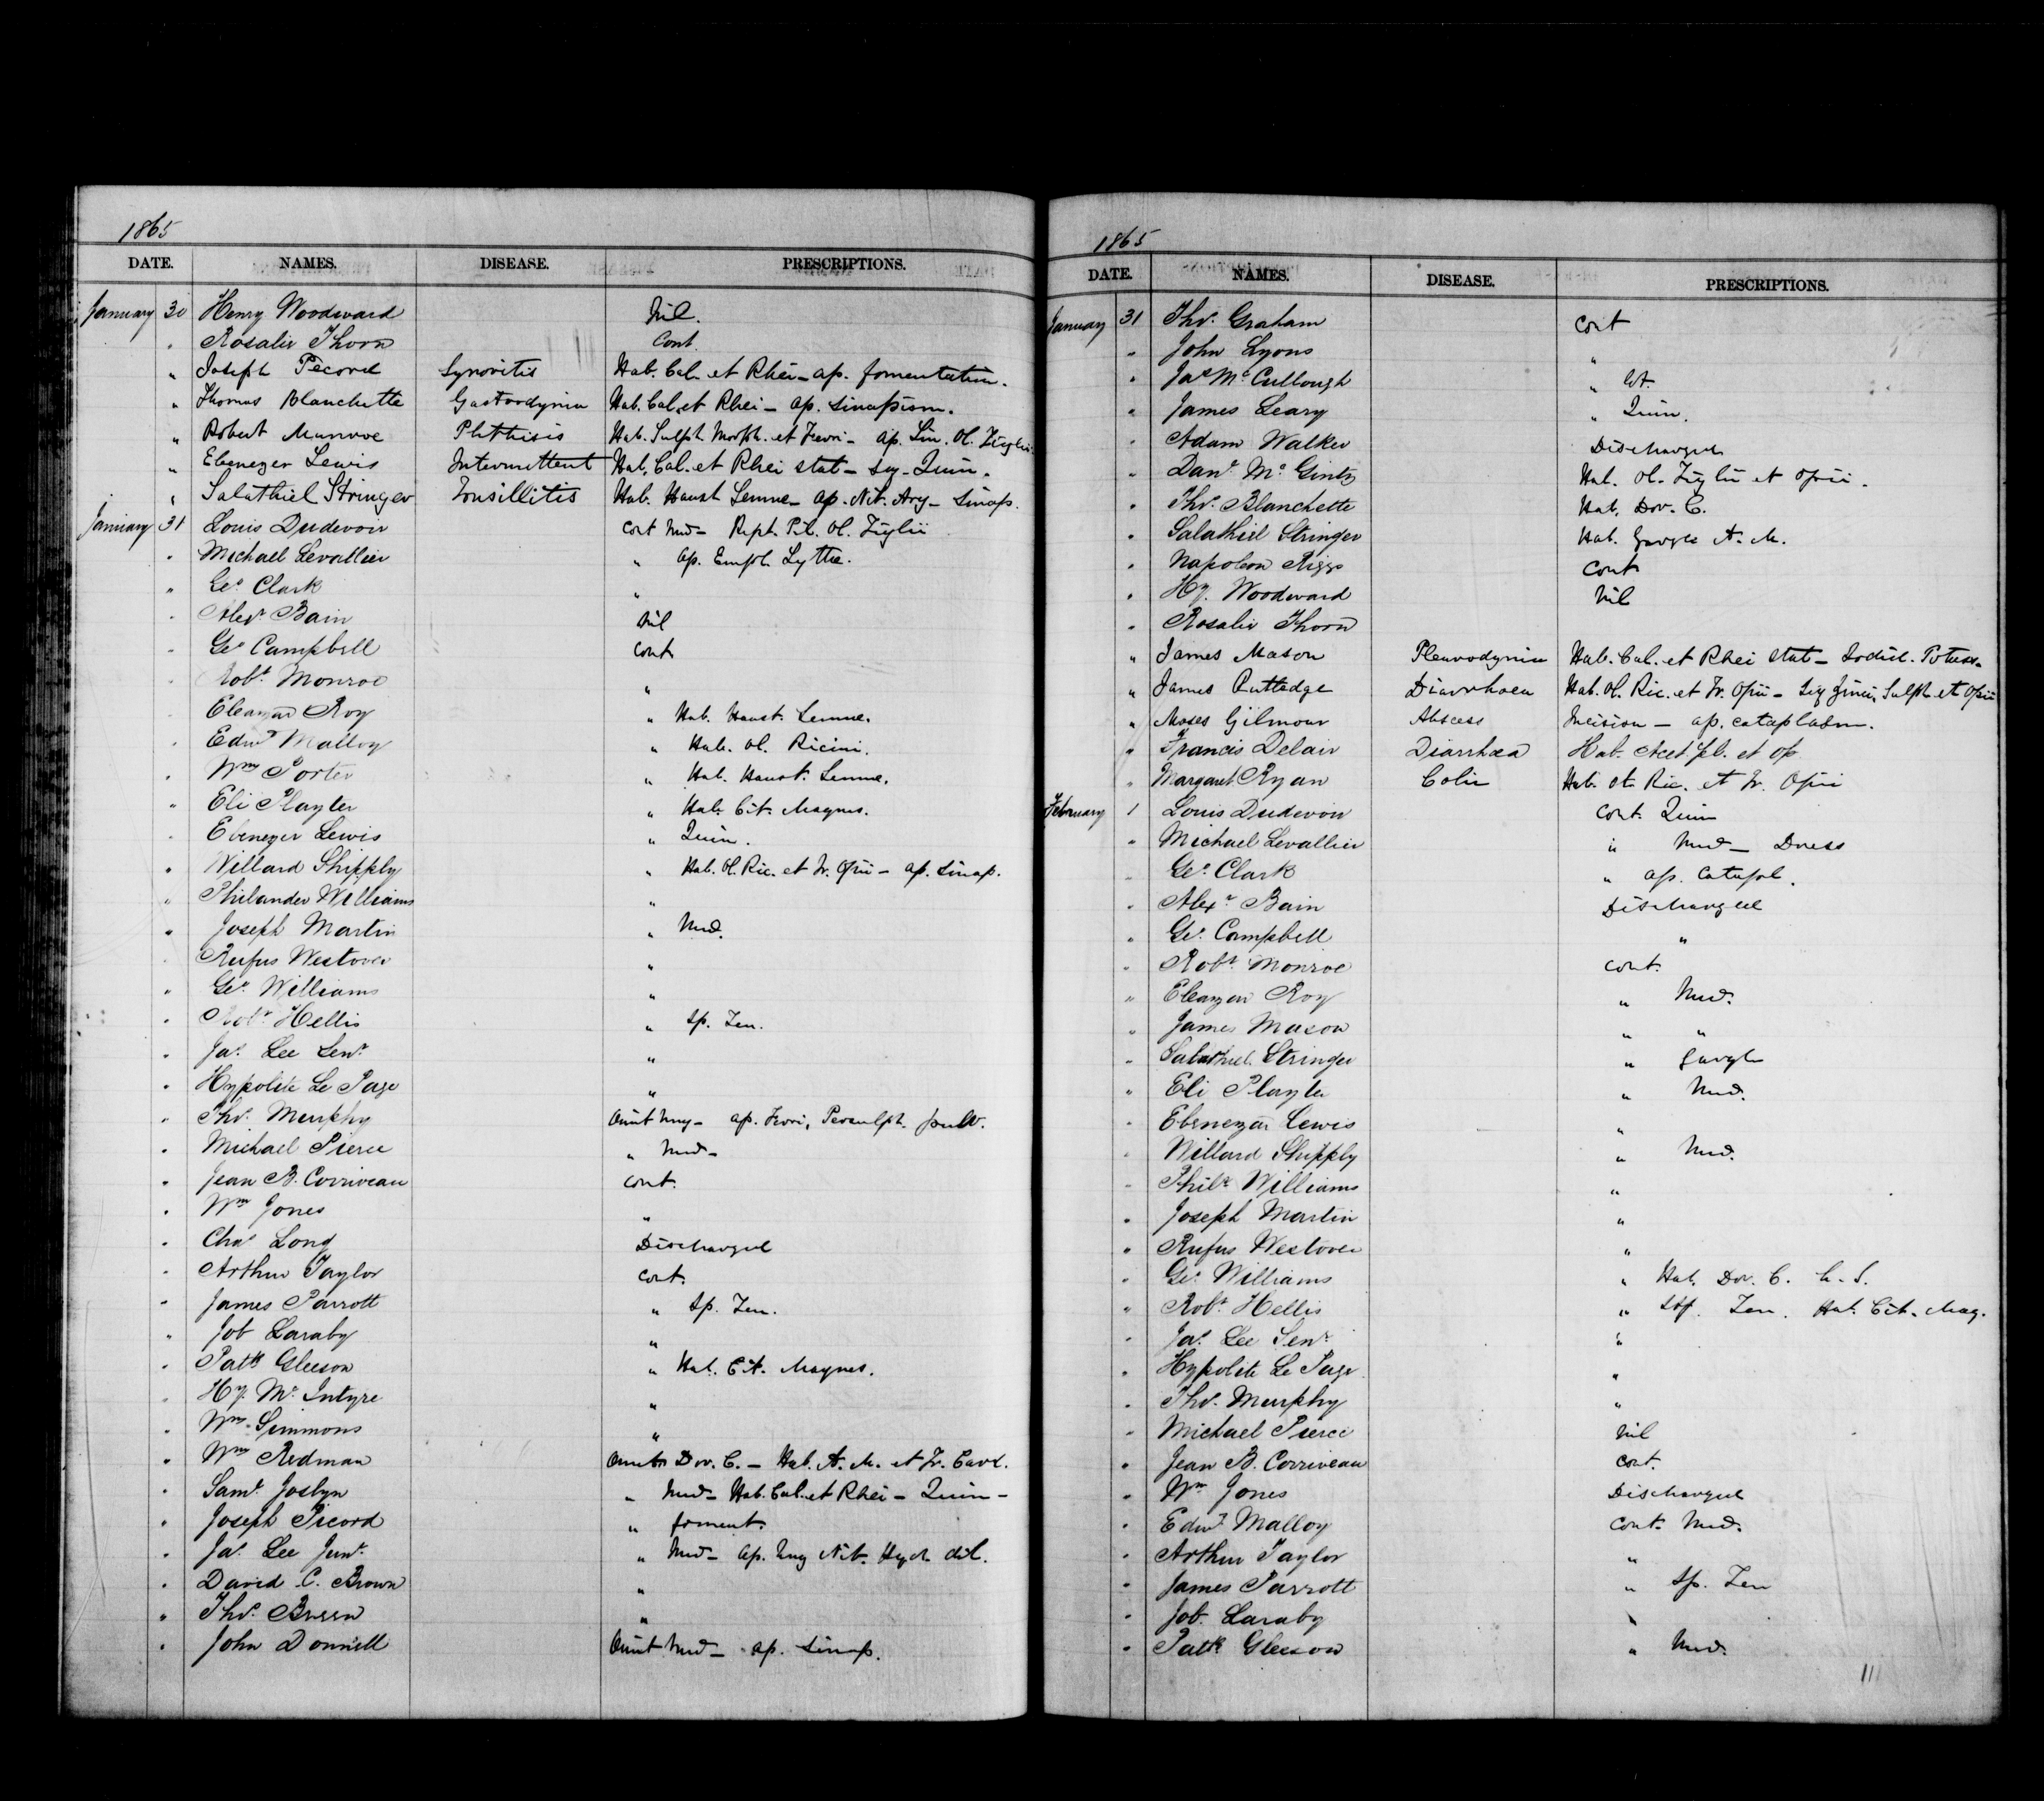 1865
DATE. NAMES. DISEASE. PRESCRIPTIONS.
January 30 Henry Woodward Nil.
" Rosalie Thorn Cont.
" Joseph Pecord Synovitis Hab. Cal. et Rhei - ap. fomentation.
" Thomas Blanchette Gastrodynia Hab. Cal. et Rhei - ap. sinapism.
" Robert Munroe Phthisis Hab. Sulph. Morph. et Ferri - Ap. Lin. Ol. Tiglii.
" Ebenezer Lewis Intermittent Hab. Cal. et Rhei stat - Quin.
" Salathiel Stringer Tonsillitis Hab. Haust Sennae - ap. Nit. Arg - Sinap.
January 31 Louis Dudevoir Cont Med - Rept. Pil. Ol. Tiglii
" Michael Levallier " ap. Empl. Lyttae.
" Geo Clark "
" Alexr Bain Nil
" Geo Campbell Cont
" Robt. Monroe "
" Eleazar Roy " Hab. Haust. Sennae.
" Edwd Malloy " Hab. Ol. Ricini.
" Wm Porter " Hab. Haust. Sennae.
" Eli Playter " Hab. Cit. Magnes.
" Ebenezer Lewis " Quin.
" Willard Shipply " Hab. Ol. Ric. et Tr. Opii - ap. Sinap.
" Philander Williams "
" Joseph Martin " Med.
" Rufus Westover "
" Geo Williams "
" Robt. Hellis " Sp. Ten.
" Jas. Lee Senr. "
" Hypolite Le Page "
" Thos. Murphy Omit Ung - ap. Ferri, Persulph. pulv.
" Michael Pierce " Med -
" Jean B. Corriveau Cont.
" Wm Jones "
" Chas Long Discharged
" Arthur Taylor Cont.
" James Parrott " Sp. Ten.
" Job Laraby "
" Patk Gleeson " Hab. Cit. Magnes.
" Hy. Mc Intyre "
" Wm. Simmons "
" Wm Redman Omit Dov. C. - Hab. A. M. et Tr. Card.
" Saml. Joslyn " Med - Hab. Cal. et Rhei - Quin -
" Joseph Picord " foment.
" Jas. Lee Junr. " Med - ap. Ung Nit. Hyd. dil.
" David C. Brown "
" Thos. Breen "
" John Donnell Omit Med - ap. Sinap.
1865
DATE. NAMES. DISEASE. PRESCRIPTIONS.
January 31 Thos. Graham Cont
" John Lyons "
" Jas McCullough "
" James Leary " Quin.
" Adam Walker Discharged
" Danl. McGinty Hab. Ol. Tiglii et Opii.
" Thos. Blanchette Hab. Dov. C.
" Salathiel Stringer Hab. Gargle A. M.
" Napoleon Riggs Cont
" Hy. Woodward Nil
" Rosalie Thorn
" James Mason Pleurodynia Hab. Cal. et Rhei stat - Iodid. Potass.
" James Rutledge Diarrhoea Hab. Ol. Ric. et Tr. Opii - Zinci, Sulph et Opii
" Moses Gilmour Abscess Incision - ap. cataplasm.
" Francis Delair Diarrhœa Hab. Acet pl. et Op
" Margaret Ryan Colic Hab. Ol. Ric. et Tr. Opii
February 1 Louis Dudevoir Cont. Quin
" Michael Levallier " Med - Dress
" Geo. Clark " ap. Catapl.
" Alexr Bain Discharged
" Geo. Campbell "
" Robt. Monroe Cont.
" Eleazar Roy " Med.
" James Mason " "
" Salathiel Stringer " Gargle
" Eli Playter " Med.
" Ebenezar Lewis "
" Willard Shipply " Med.
" Philr Williams "
" Joseph Martin "
" Rufus Westover "
" Geo Williams " Hab. Dov. C. h. S.
" Robt. Hellis " Ten. Hab. Cit. Mag.
" Jas. Lee Senr "
" Hypolite Le Page "
" Thos. Murphy "
" Michael Pierce Nil
" Jean B. Corriveau Cont.
" Wm Jones Discharged
" Edwd Malloy Cont. Med.
" Arthur Taylor "
" James Parrott " Sp. Ten
" Job. Laraby "
" Patk Gleeson " Med.
111